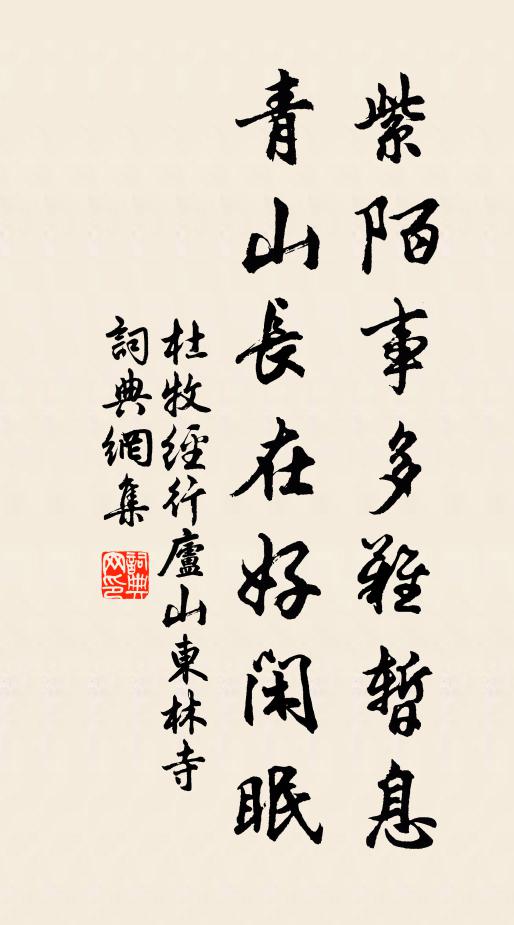 紫陌事多難暫息
青山長在好閑眠
杜牧經行廬山東林寺
詞典網集
詞典
网印